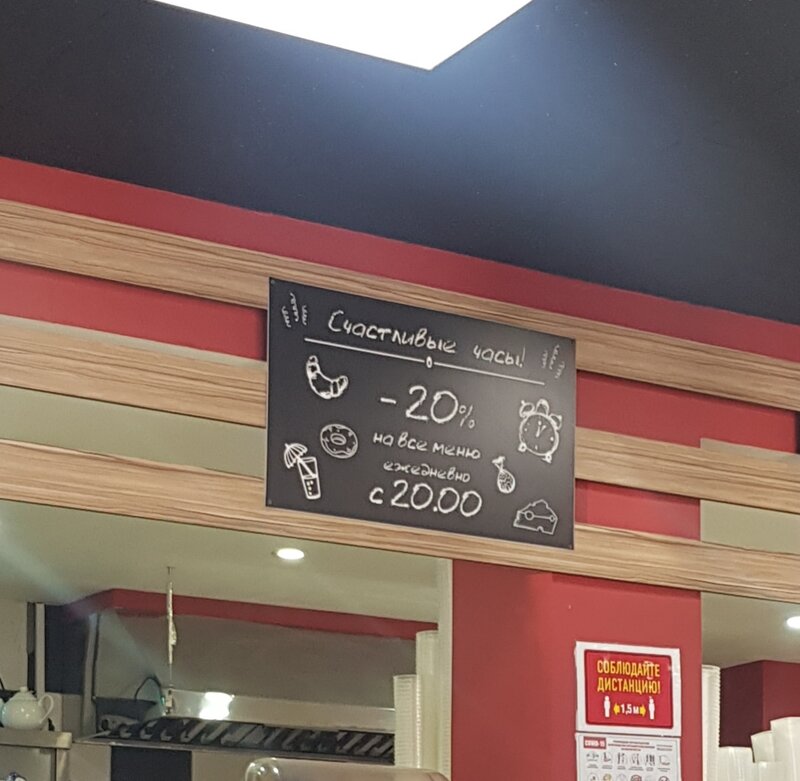 Счастливые часы!
-20%
на все меню
ежедневно
с 20.00
СОБЛЮДАЙТЕ
ДИСТАНЦИЮ!
1,5 м
COVID-19